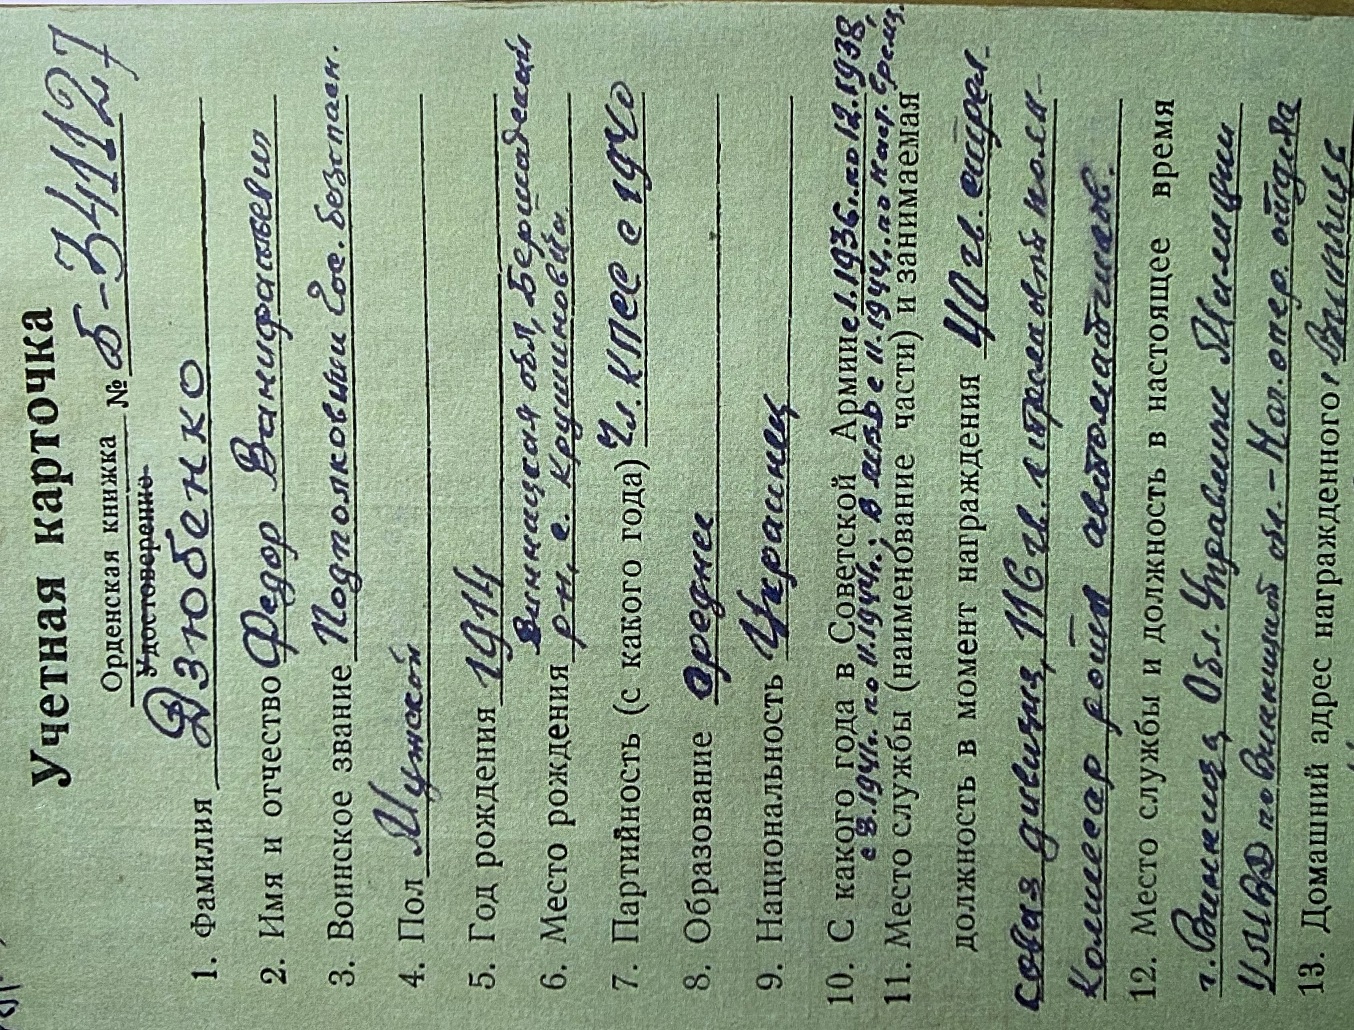 Учетная карточка
Орденская книжка № Б-341127
Удостоверение
1. Фамилия Дзюбенко
2. Имя и отчество Федор Ванифатьевич
3. Воинское звание Подполковник Гос. безопасн.
4. Пол Мужской
5. Год рождения 1914
6. Место рождения Винницкая обл, Бершадский
рн, с. Крушиновка
7. Партийность (с какого года) Чл. КПСС с 1940
8. Образование средне
9. Национальность Украинец
10. С какого года в Советской Армии с 1.1936. по 12.1938,
с 8.1941г. по 11.1944г.; В МВД с 11.1944. по наст. время.
11. Место службы (наименование части) и занимаемая
должность в момент награждения 40 гв. стрел-
ковая дивизия, 116 гв. стрелковый полк-
Комиссар роты автоматчиков.
12. Место службы и должность в настоящее время
г. Винница, Обл. Управление Милиции
УМВД по Винницкой обл. - Нач. опер. отдела
13. Домашний адрес награжденного г Винница